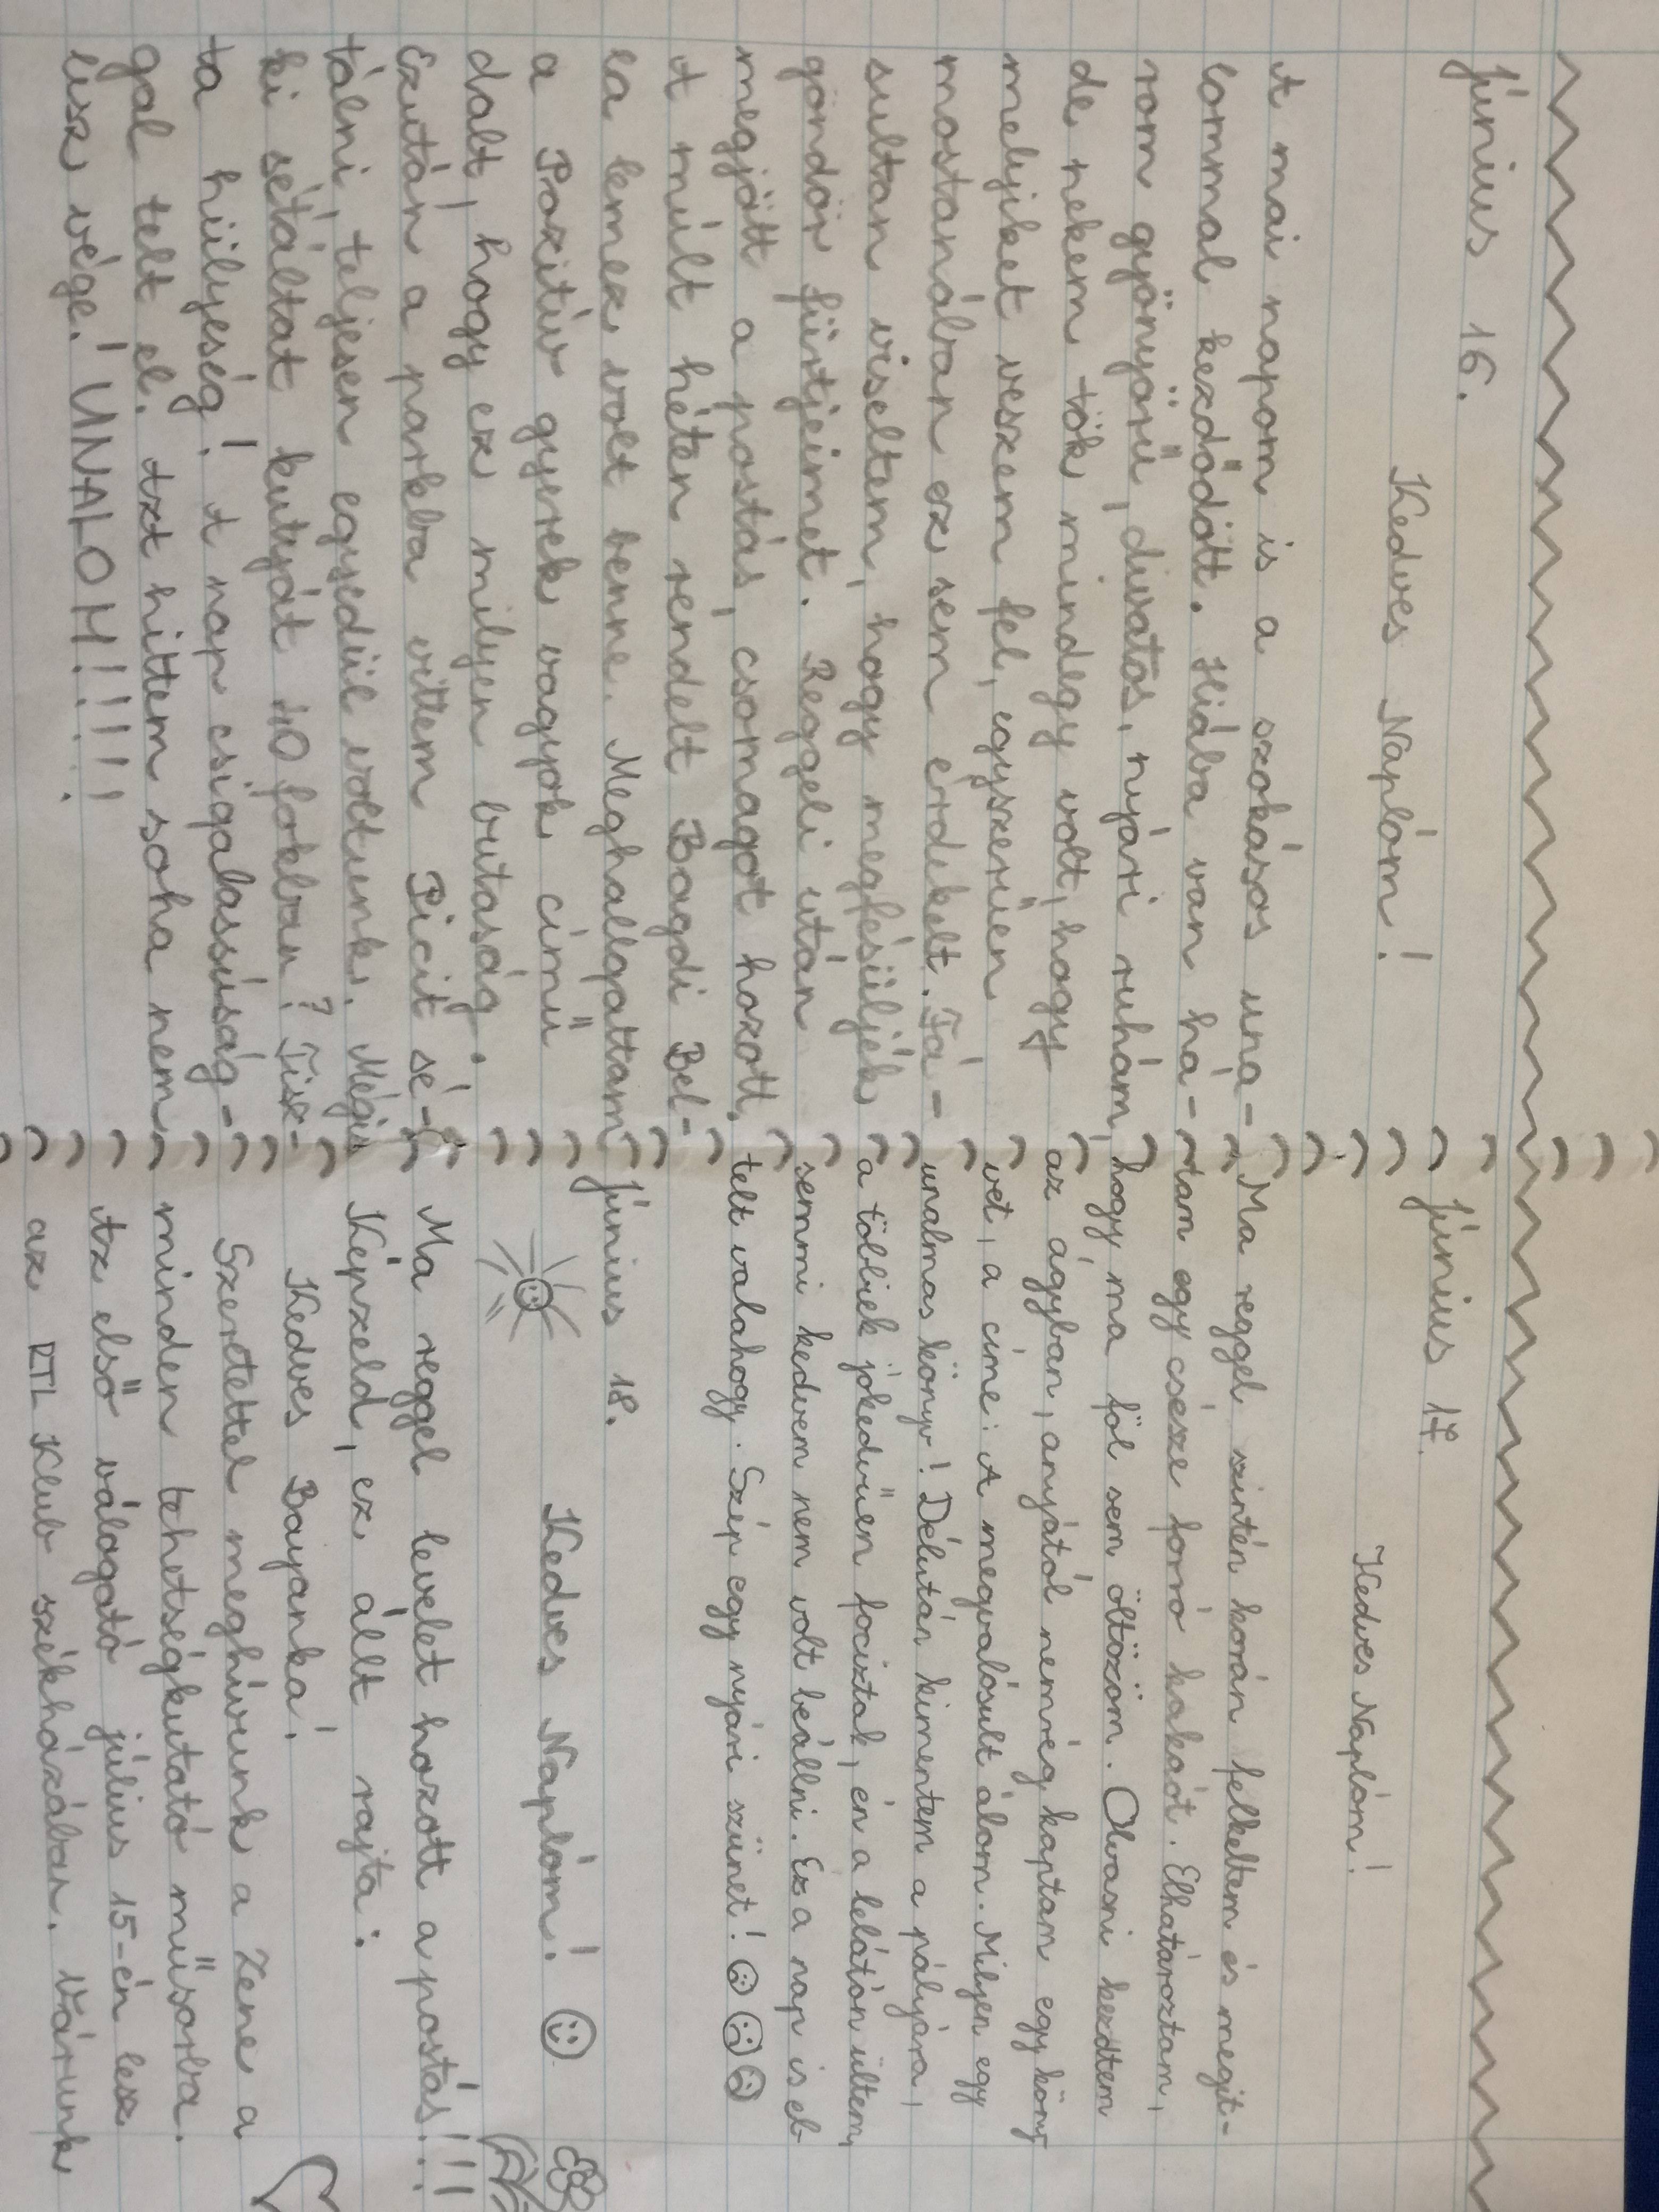 június 16.
Kedves Naplóm!
A mai napom is a szokásos una-
lommal kezdődött. Hiába van há-
rom gyönyörű, divatos, nyári ruhám,
de nekem tök mindegy volt, hogy
melyiket veszem fel, egyszerűen
mostanában ez sem érdekelt. Fá-
sultan viseltem, hogy megfésüljék
göndör fürtjeimet. Reggeli után
megjött a postás, csomagot hozott.
A múlt héten rendelt Bagdi Bel-
la lemez volt benne. Meghallgattam
a Pozitív gyerek vagyok című
dalt, hogy ez milyen butaság.
Ezután a parkba vittem Picit sé-
tálni, teljesen egyedül voltunk. Mégis
ki sétáltat kutyát 40 fokban? Tisz-
ta hülyeség! A nap csigalassúság-
gal telt el. Azt hittem soha nem
lesz vége! UNALOM!!!!!
június 17.
Kedves Naplóm!
Ma reggel szintén korán felkeltem és megit-
tam egy csésze forró kakaót. Elhatároztam,
hogy ma föl sem öltözöm. Olvasni kezdtem
az ágyban, anyától nemrég kaptam egy köny
vet, a címe: A megvalósult álom. Milyen egy
unalmas könyv! Délután kimentem a pályára,
a többiek jókedvűen fociztak, én a lelátón ültem,
semmi kedvem nem volt beállni. Ez a nap is el-
telt valahogy. Szép egy nyári szünet!
június 18.
Kedves Naplóm!
Ma reggel levelet hozott a postás!!!
Képzeld, ez állt rajta:
Kedves Bayanka!
Szeretettel meghívunk a Zene a
minden tehetségkutató műsorba.
Az első válogató július 15-én lesz
az RTL Klub székházában. Várunk